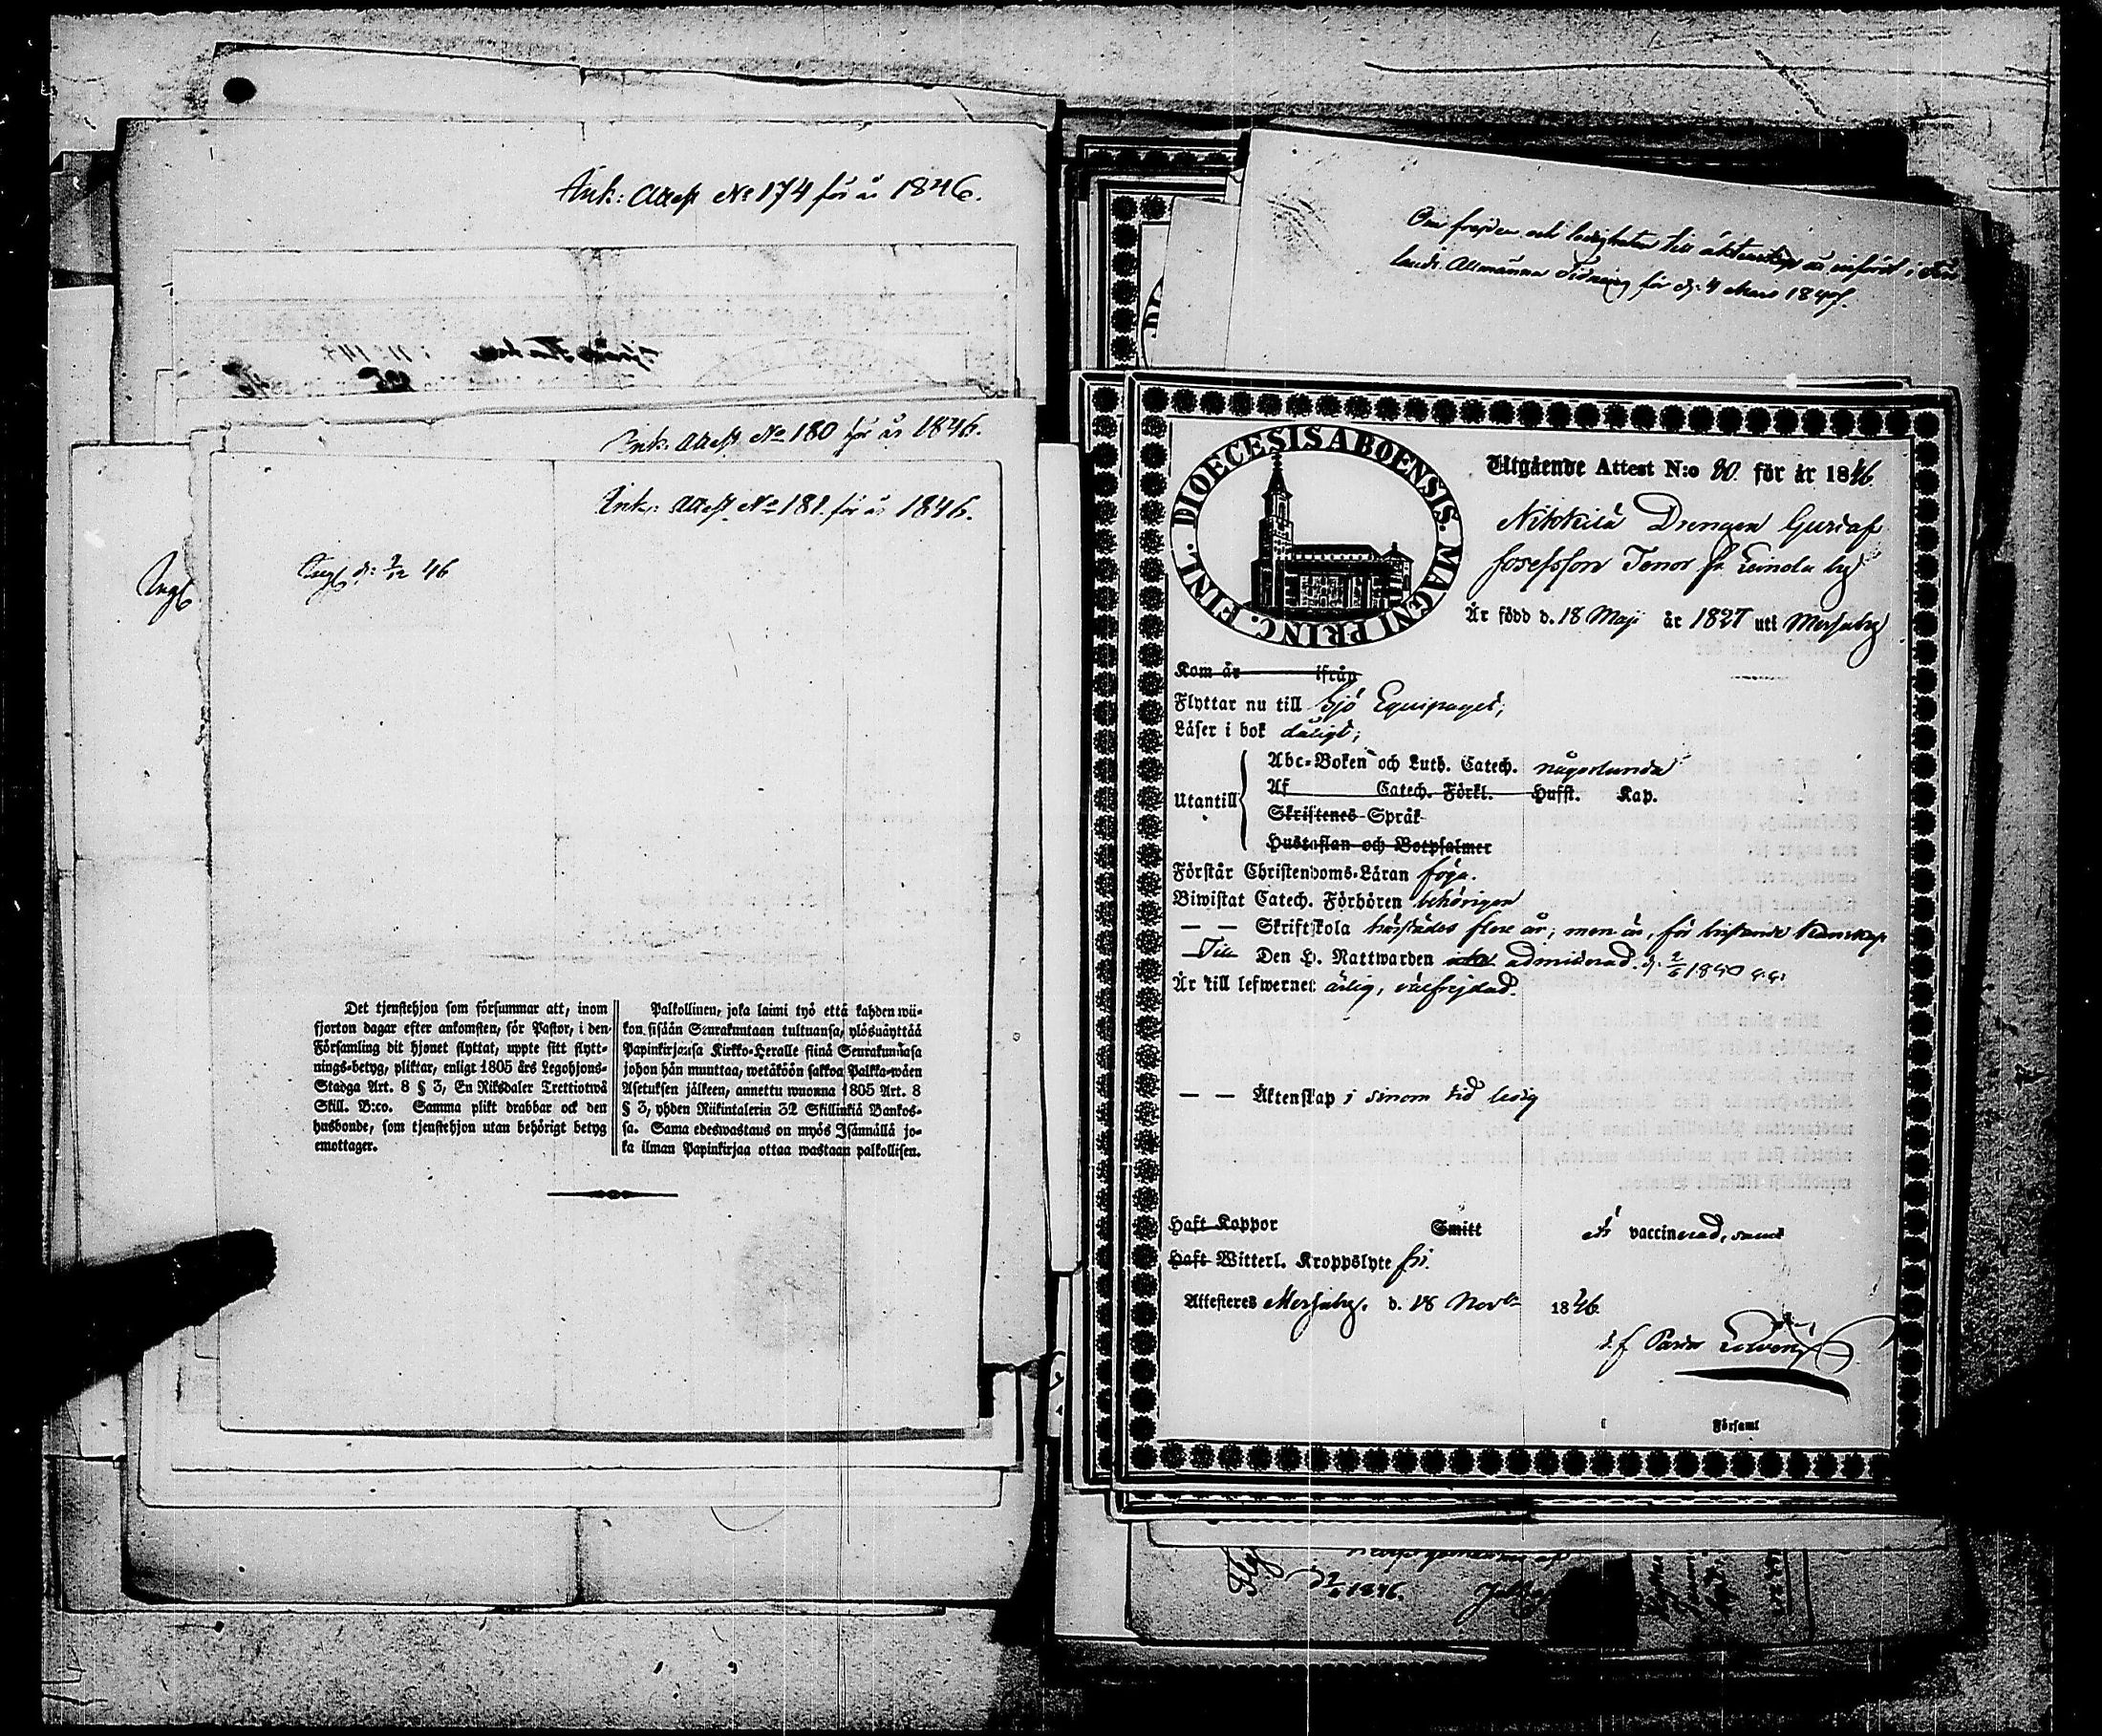 Ank: Attest No 174 för år 1846.
Ank: Attest No 180 för år 1846.
Ank: Attest No 181 för år 1846.
d: 2/12 46
Det tjenstehjon som försummar att, inom
fjorton dagar efter ankomsten, för Pastor, i den
Församling dit hjonet flyttat, uppte sitt flytt-
nings-betyg, pliktar, enligt 1805 års Legohjons-
Stadga Art. 8 § 3, En Riksdaler Trettiotwå
Skill. B:co. Samma plikt drabbar ock den
husbonde, som tjenstehjon utan behörigt betyg
emottager.
Palkollinen, joka laimi lyö että kahden wii-
kon sisään Seurakuntaan tultuansa, ylösnäyttää
Papinkirjansa Kirkko-Heralle siinä Seurakunnasa
johon hän muuttaa, wetäköön sakkoa Palkka-wäen
Asetuksen jälkeen, annettu wuonna 1805 Art. 8
§ 3, yhden Riikintalerin 32 Skillinkiä Bankos-
sa. Sama edeswastaus on myös Isännällä jo-
ka ilman Papinkirjaa ottaa wastaan palkollisen.
Om frejden och ledigheten till äktenskap är infördt i Fin
lands Allmänna Tidning för d: 4 Mars 1847.
DIOECESIS ABOENSIS. MAGNI PRINC. FINL.
Utgående Attest N:o 80. för år 1846.
Nikkilä Drengen Gustaf
Josefsson Tenor fr. Leinola by
Är född d. 18 Maji år 1827 uti
Kom år ifrån
Flyttar nu till Sjö Equipaget;
Läser i bok dåligt;
Abc-Boken och Luth. Catech. någorlunda
Utantill
Af Catech. Förkl. Hufst. Kap.
Skriftenes Språk
Hustaflan och Botpsalmer
Förstår Christendoms-Läran föga.
Biwistat Catech. Förhören behörigen
— — Skriftskola härstädes flere år; men är, för bristande kunskap
Till Den H. Nattwarden admitterad. d. 2/6 1850
Är till lefwernet ärlig, välfrejdad.
— — Äktenskap i sinom tid ledig
Haft Koppor Smitt är vaccinerad, samt
Haft Witterl. Kroppslyte fri.
Attesteres d. 18 Nov 1846.
Församl
1846.